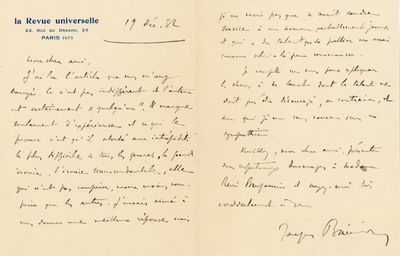 la Revue universelle
23, RUE DU DRAGON, 23
PARIS (VIe)
19 Déc. 32
Mon cher ami,
J'ai lu l'article que vous m'avez
envoyé. Ce n'est pas indifférent et l'auteur
est certainement "quelqu'un". Il manque
seulement d'expérience et ce qui le
prouve c'est qu'il aborde avec intrépidité
le plus difficile de tous les genres, la grande
ironie, l'ironie transcendantale, celle
qui n'est pas comprise, encore moins com-
prise que les autres. J'aurais aimé à
vous donner une meilleure réponse mais
je ne crois pas que ce serait rendre
service à un homme probablement jeune
et qui a du talent que de publier un essai
comme celui-là pour commencer.
Je compte sur vous pour expliquer
les choses à ce dont le talent ne
doit pas être découragé, au contraire, et
que je
sympathie.
Veuillez, mon cher ami, présenter
mes respectueux hommages à madame
René Benjamin et croyez-moi très
cordialement à vous
Jacques Bainville